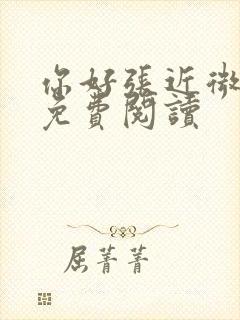 你好張近微
免費閱讀
屈菁菁